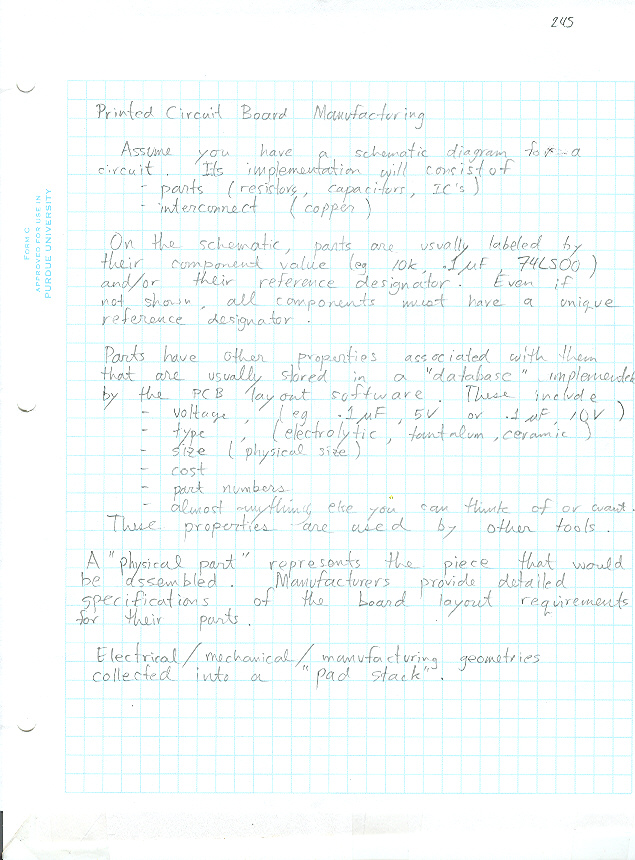 245
FORM C
APPROVED FOR USE IN
PURDUE UNIVERSITY
Printed Circuit Board Manufacturing
Assume you have a schematic diagram for a
circuit. Its implementation will consist of
- parts (resistors, capacitors, IC's)
- interconnect (copper)
On the schematic, parts are usually labeled by
their component value (eg 10k, .1µF, 74LS00)
and/or their reference designator. Even if
not shown, all components must have a unique
reference designator.
Parts have other properties associated with them
that are usually stored in a "database" implemented
by the PCB layout software. These include
- voltage, (eg .1µF, 5V or .1µF, 10V)
- type, (electrolytic, tantalum, ceramic)
- size (physical size)
- cost
- part numbers
- almost anything else you can think of or want.
These properties are used by other tools.
A "physical part" represents the piece that would
be assembled. Manufacturers provide detailed
specifications of the board layout requirements
for their parts.
Electrical/mechanical/manufacturing geometries
collected into a "pad stack".